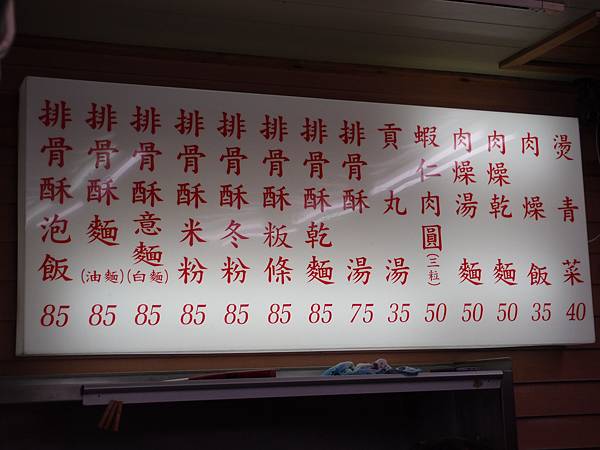 排骨酥泡飯 85
排骨酥麵(油麵) 85
排骨酥意麵(白麵) 85
排骨酥米粉 85
排骨酥冬粉 85
排骨酥粄條 85
排骨酥乾麵 85
排骨酥湯 75
貢丸湯 35
蝦仁肉圓(三粒) 50
肉燥湯麵 50
肉燥乾麵 50
肉燥飯 35
燙青菜 40